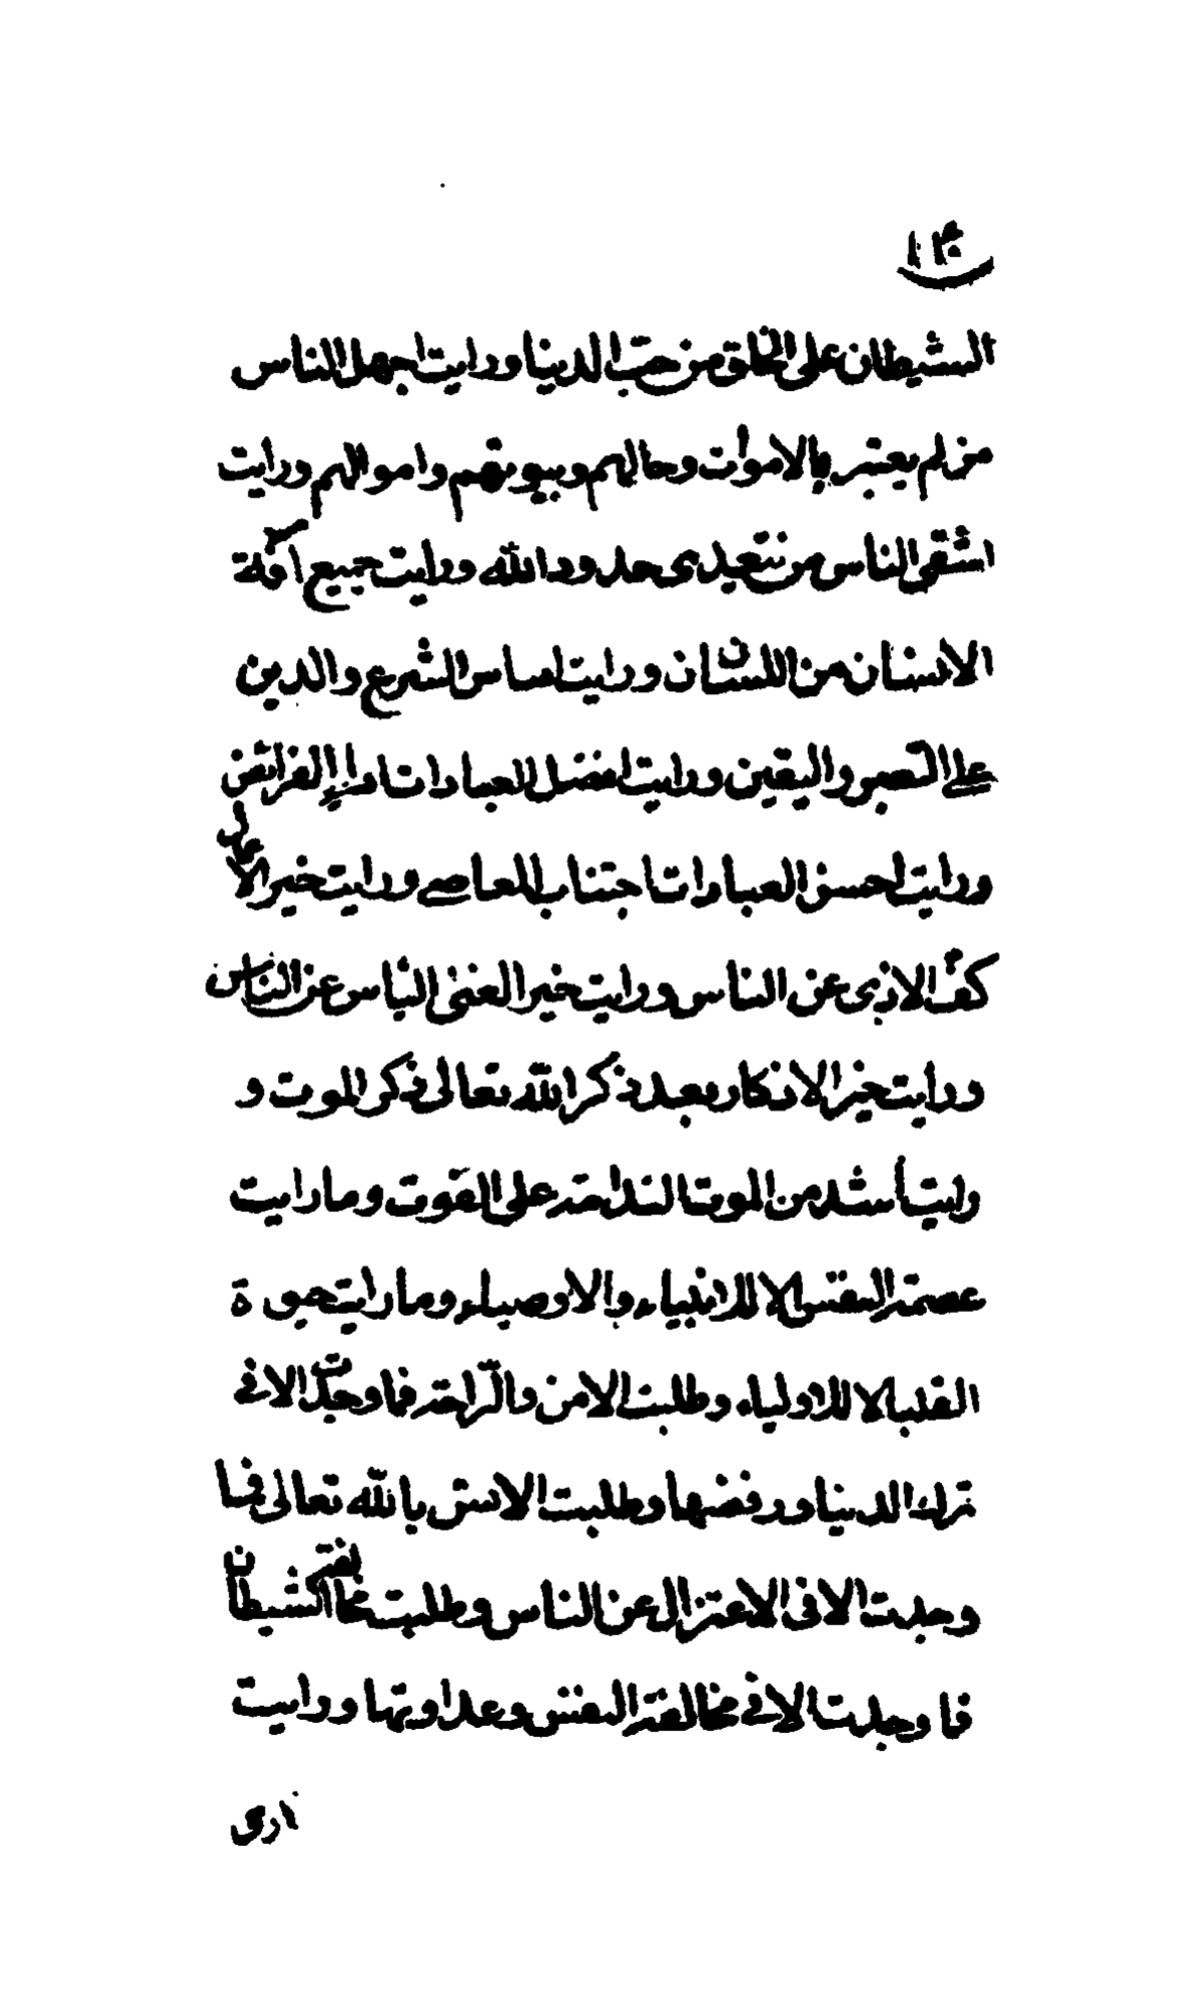 الشيطان على الخلق من حب الدنيا ورايت اجهل الناس
من لم يعتبر بالاموات وحالهم وبيوتهم واموالهم ورايت
اشقى الناس من تتعدى حدود الله ورايت جميع افة
الانسان من اللسان ورايت اساس الشرع والدين
على الصبر واليقين ورايت افضل العبادات اداء الفرائض
ورايت احسن العبادات اجتناب المعاصي ورايت خير الاعمال
كف الاذى عن الناس ورايت خير الغنى الياس عن الناس
ورايت خير الاذكار بعد ذكر الله تعالى ذكر الموت و
رايت أشد من الموت الندامة على الفوت وما رايت
عصمة النفس الا للانبياء والاوصياء وما رايت حيوة
القلب الا للاولياء وطلبت الامن والراحة فما وجدت الا في
ترك الدنيا ورفضها وطلبت الانس بالله تعالى فما
وجدت الا في الاعتزال عن الناس وطلبت مخالفة الشيطان
فما وجدت الا في مخالفة النفس وعداوتها ورايت